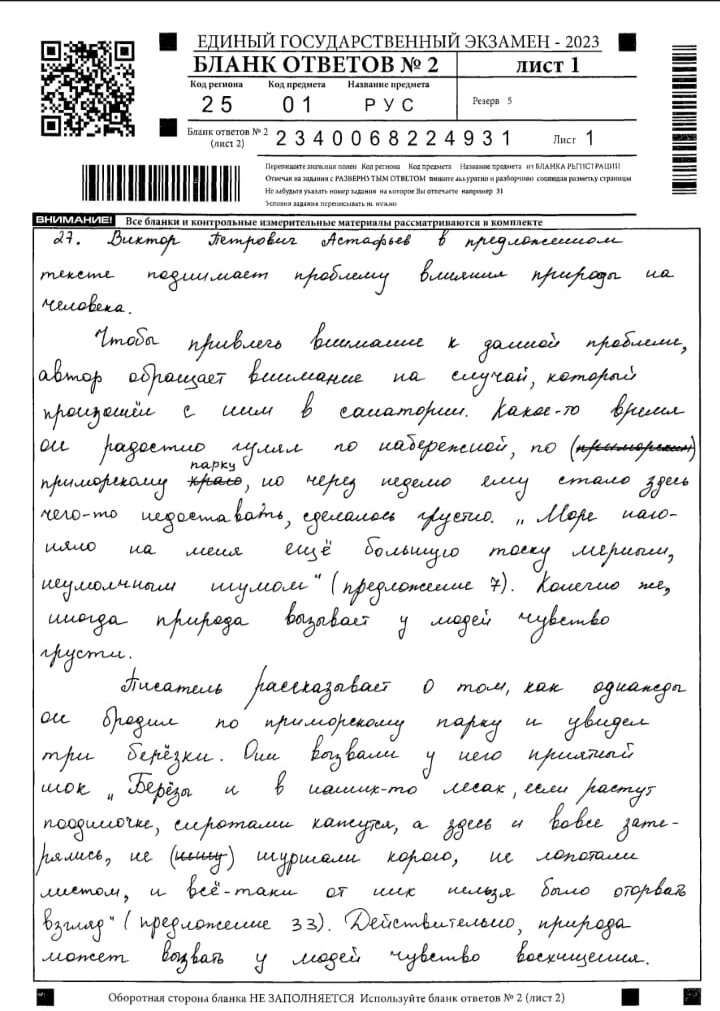 ЕДИНЫЙ ГОСУДАРСТВЕННЫЙ ЭКЗАМЕН - 2023
БЛАНК ОТВЕТОВ № 2
лист 1
Код региона Код предмета Название предмета
25 01 РУС
Резерв 5
Бланк ответов № 2 (лист 2)
2340068224931
Лист 1
Перепишите значения полей Код региона Код предмета Название предмета из БЛАНКА РЕГИСТРАЦИИ
Отвечая на задания с РАЗВЕРНУТЫМ ОТВЕТОМ пишите аккуратно и разборчиво соблюдая разметку страницы
Не забудьте указать номер задания на которое Вы отвечаете например 31
Условия задания переписывать не нужно
ВНИМАНИЕ! Все бланки и контрольные измерительные материалы рассматриваются в комплекте
27. Виктор Петрович Астафьев в предложенном
тексте поднимает проблему влияния природы на
человека.
Чтобы привлечь внимание к данной проблеме,
автор обращает внимание на случай, который
произошёл с ним в санатории. Какое-то время
он радостно гулял по набережной, по (приморским)
парку
приморскому краю, но через неделю ему стало здесь
чего-то недоставать, сделалось грустно. „Море наго-
няло на меня ещё большую тоску мерным,
неумолчным шумом“ (предложение 7). Конечно же,
иногда природа вызывает у людей чувство
грусти.
Писатель рассказывает о том, как однажды
он бродил по приморскому парку и увидел
три берёзки. Они вызвали у него приятный
шок „Берёзы и в наших-то лесах, если растут
поодиночке, сиротами кажутся, а здесь и вовсе зате-
рялись, не шуршали корою, не лопотали
листом, и всё-таки от них нельзя было оторвать
взгляд“ (предложение 33). Действительно, природа
может вызвать у людей чувство восхищения.
Оборотная сторона бланка НЕ ЗАПОЛНЯЕТСЯ Используйте бланк ответов № 2 (лист 2)